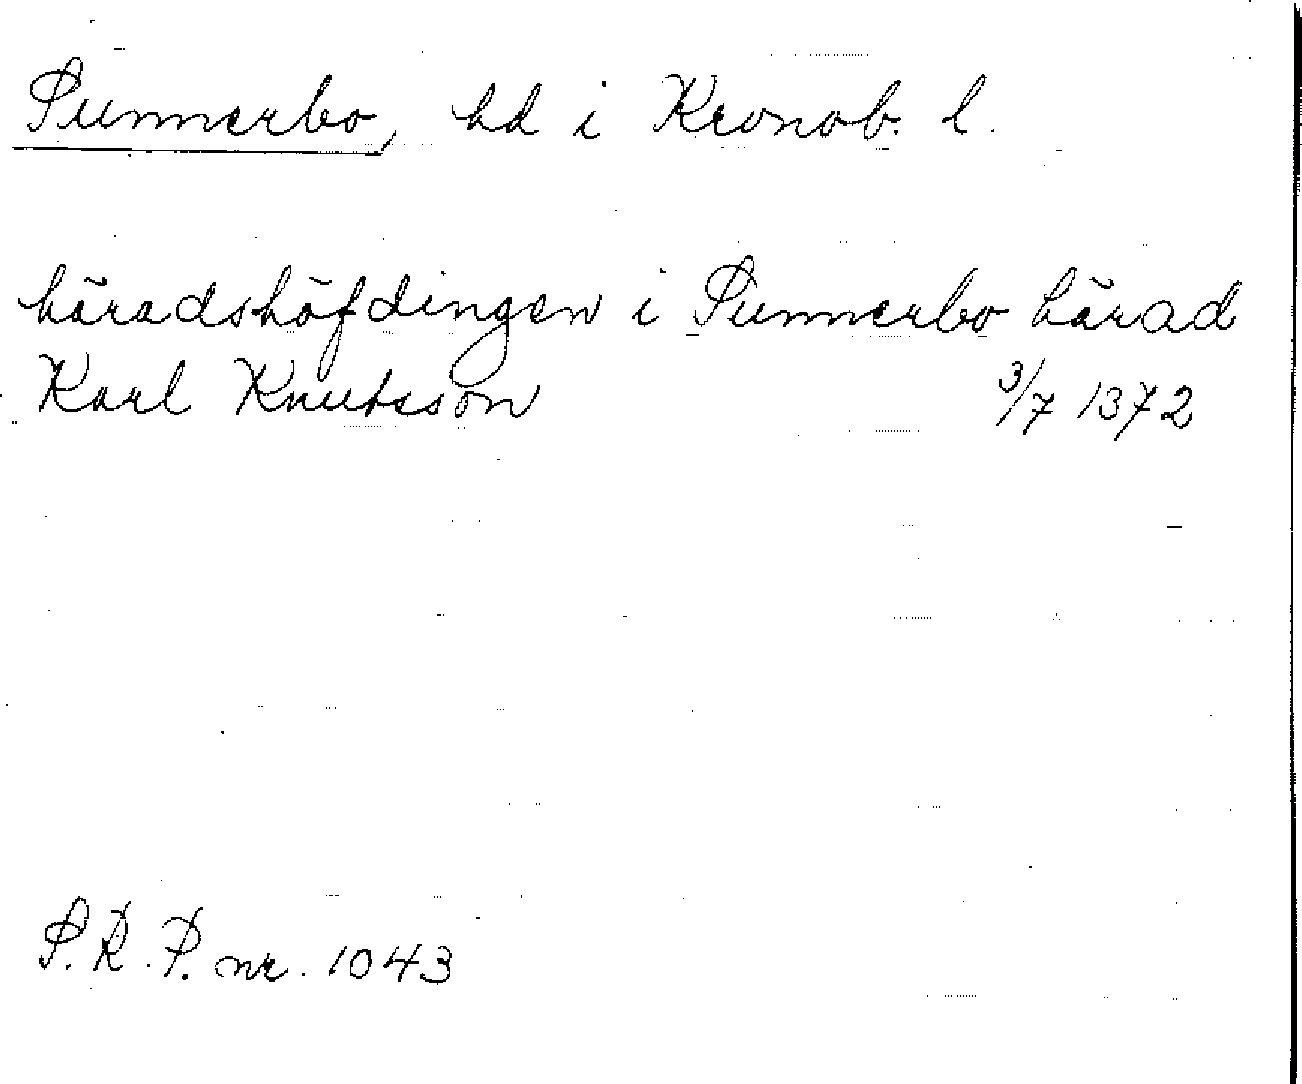 Sunnerbo, hd i Kronob. l.
häradshöfdingen i Sunnerbo härad
Karl Knutsson 3/7 1372
S.R.P. nr. 1043